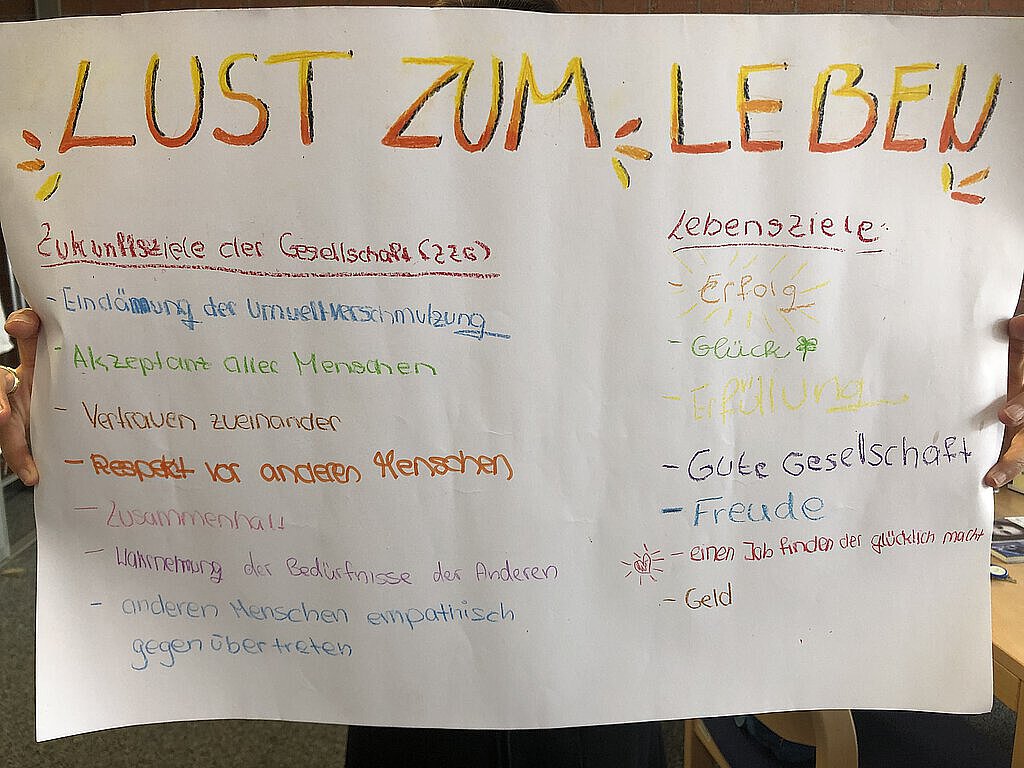 LUST ZUM LEBEN
Zukunftsziele der Gesellschaft (ZZG)
- Eindämmung der Umweltverschmutzung
- Akzeptanz aller Menschen
- Vertrauen zueinander
- Respekt vor anderen Menschen
- Zusammenhalt
- Wahrnemung der Bedürfnisse der Anderen
- anderen Menschen empathisch
gegenübertreten
Lebensziele:
- Erfolg
- Glück
- Erfüllung
- Gute Gesellschaft
- Freude
- einen Job finden der glücklich macht
- Geld